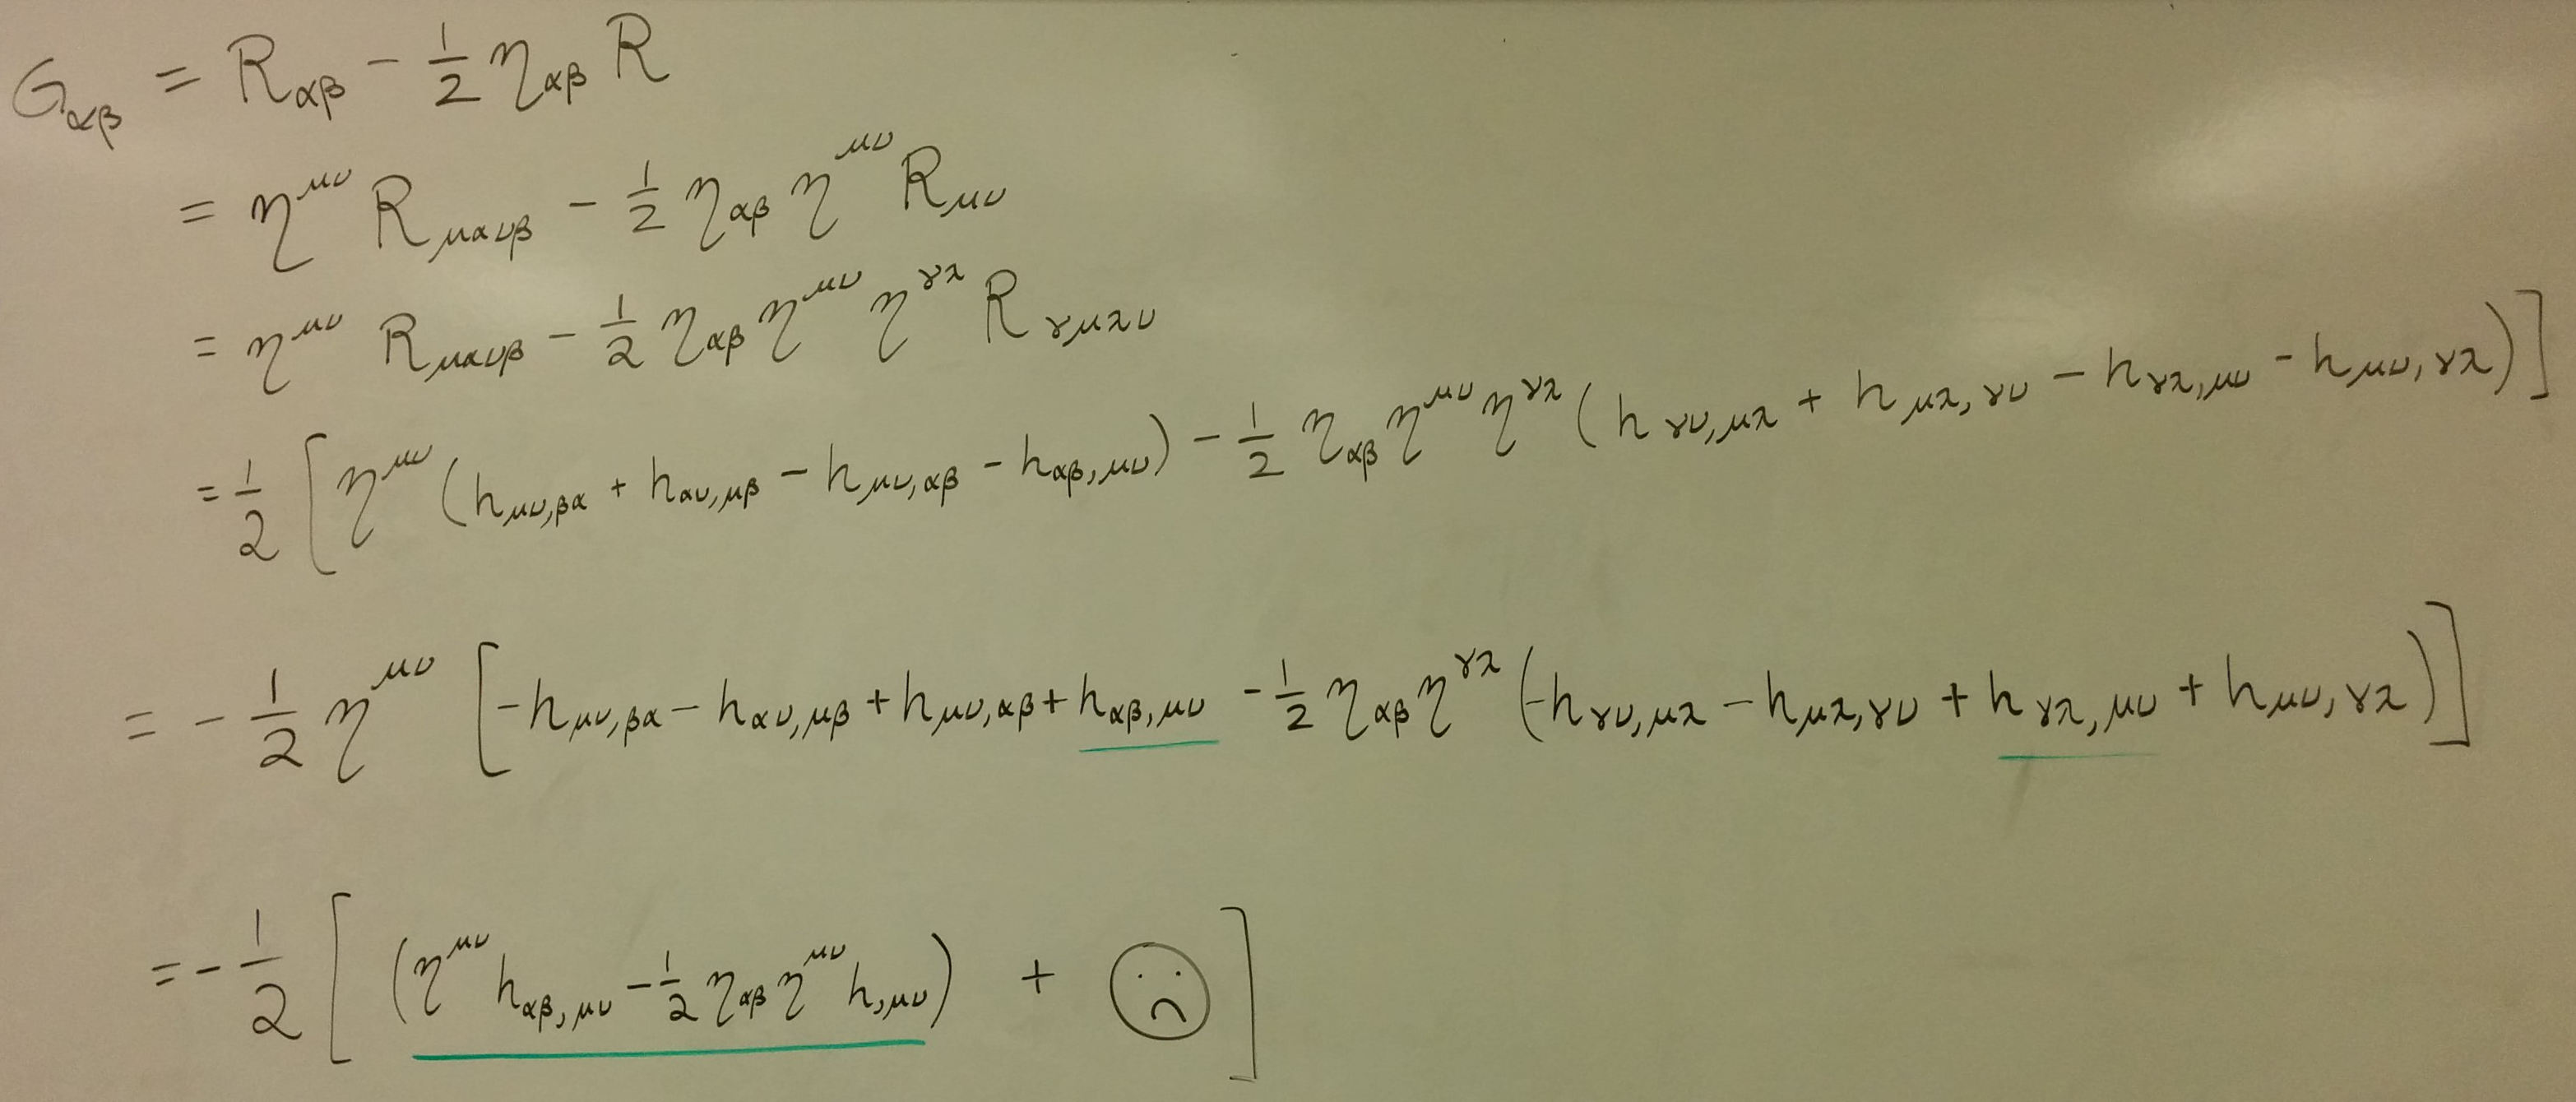 G_{αβ} = R_{αβ} - 1/2 η_{αβ} R
= η^{μν} R_{μανβ} - 1/2 η_{αβ} η^{μν} R_{μν}
= η^{μν} R_{μανβ} - 1/2 η_{αβ} η^{μν} η^{γλ} R_{γμλν}
= 1/2 [ η^{μν} (h_{μν,βα} + h_{αν,μβ} - h_{μν,αβ} - h_{αβ,μν}) - 1/2 η_{αβ} η^{μν} η^{γλ} (h_{γν,μλ} + h_{μλ,γν} - h_{γλ,μν} - h_{μν,γλ}) ]
= - 1/2 η^{μν} [ -h_{μν,βα} - h_{αν,μβ} + h_{μν,αβ} + h_{αβ,μν} - 1/2 η_{αβ} η^{γλ} (-h_{γν,μλ} - h_{μλ,γν} + h_{γλ,μν} + h_{μν,γλ}) ]
= - 1/2 [ (η^{μν} h_{αβ,μν} - 1/2 η_{αβ} η^{μν} h_{,μν}) + ☹ ]